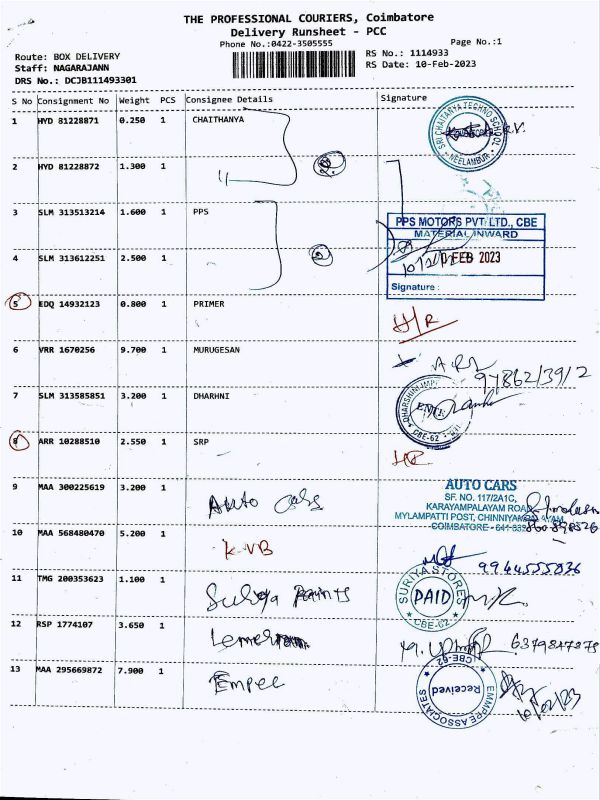 THE PROFESSIONAL COURIERS, Coimbatore
Delivery Runsheet - PCC
Phone No.:0422-3505555
Page No.:1
Route: BOX DELIVERY
RS No.: 1114933
Staff: NAGARAJANN
RS Date: 10-Feb-2023
DRS No.: DCJB111493301
S No Consignment No Weight PCS Consignee Details Signature
1 HYD 81228871 0.250 1 CHAITHANYA
SRI CHAITANYA TECHNO SCHOOL
NEELAMBUR
2 HYD 81228872 1.300 1
3 SLM 313513214 1.600 1 PPS
PPS MOTORS PVT. LTD., CBE
MATERIAL INWARD
4 SLM 313612251 2.500 1
FEB 2023
Signature :
5 EDQ 14932123 0.800 1 PRIMER
H/R
6 VRR 1670256 9.700 1 MURUGESAN
97862/39/2
7 SLM 313585851 3.200 1 DHARHNI
CBE-62
8 ARR 10288510 2.550 1 SRP
HR
9 MAA 300225619 3.200 1 Auto Cabs
AUTO CARS
SF. NO. 117/2A1C,
KARAYAMPALAYAM ROAD
MYLAMPATTI POST,
COIMBATORE
10 MAA 568480470 5.200 1 KVB
9944555836
11 TMG 200353623 1.100 1 Surya Paints
SURIYA STORES
PAID
CBE-62
12 RSP 1774107 3.650 1
13 MAA 295669872 7.900 1 Empee
CBE-62
Received
EMMPRE ASSOCIATES
10/02/23